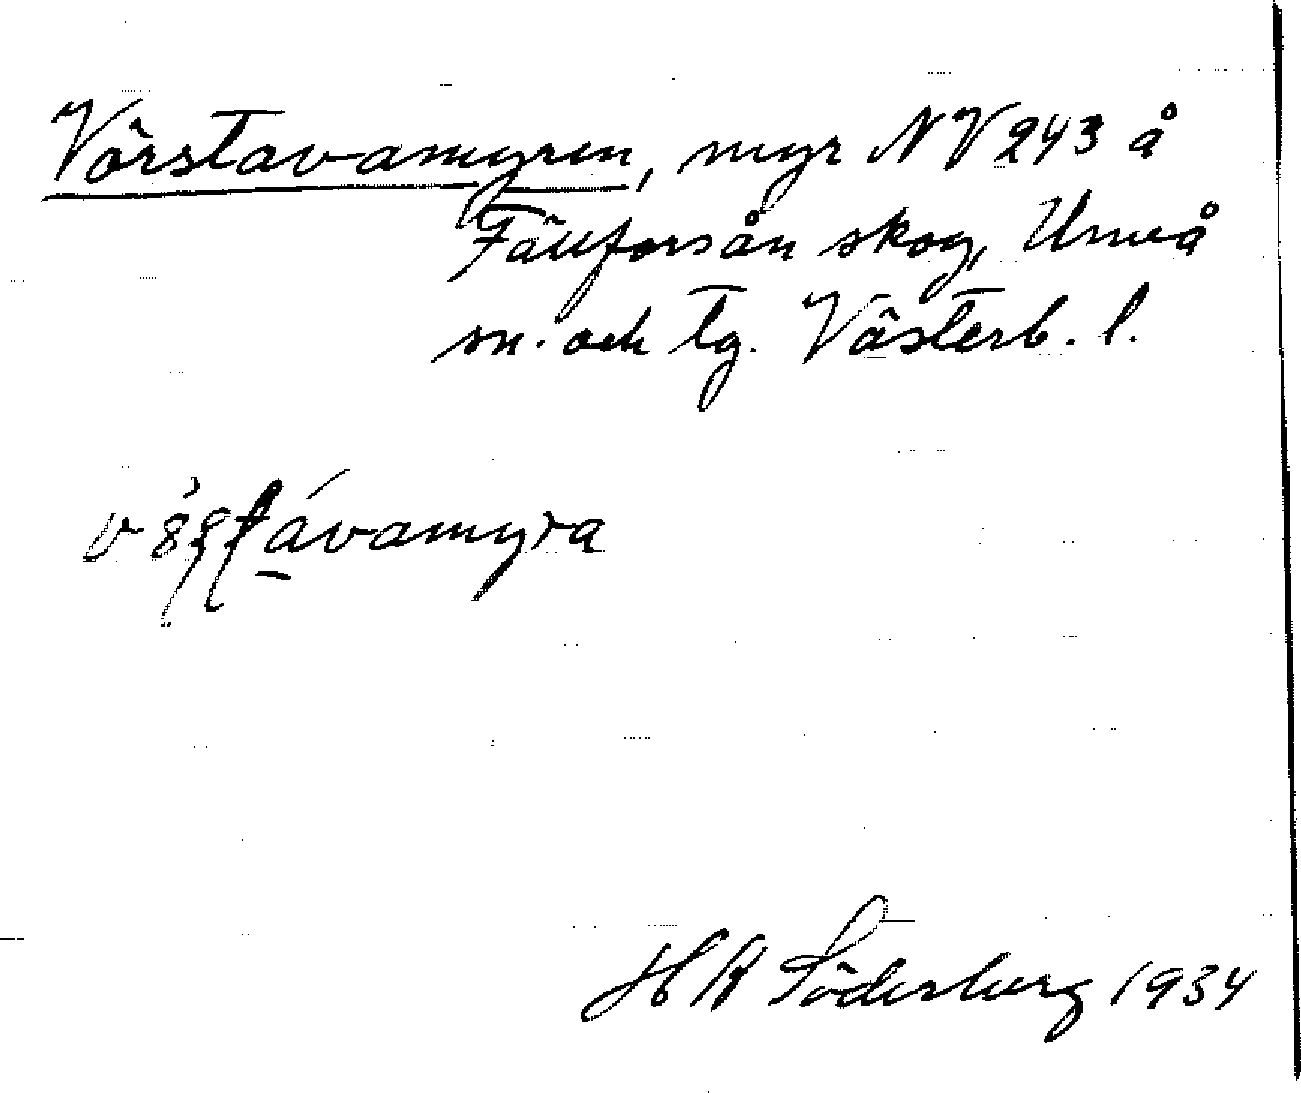 Vörstavamyren, myr NV 243 å
Fällforsån skog, Umeå
sn. och tg. Västerb. l.
H Söderberg 1934